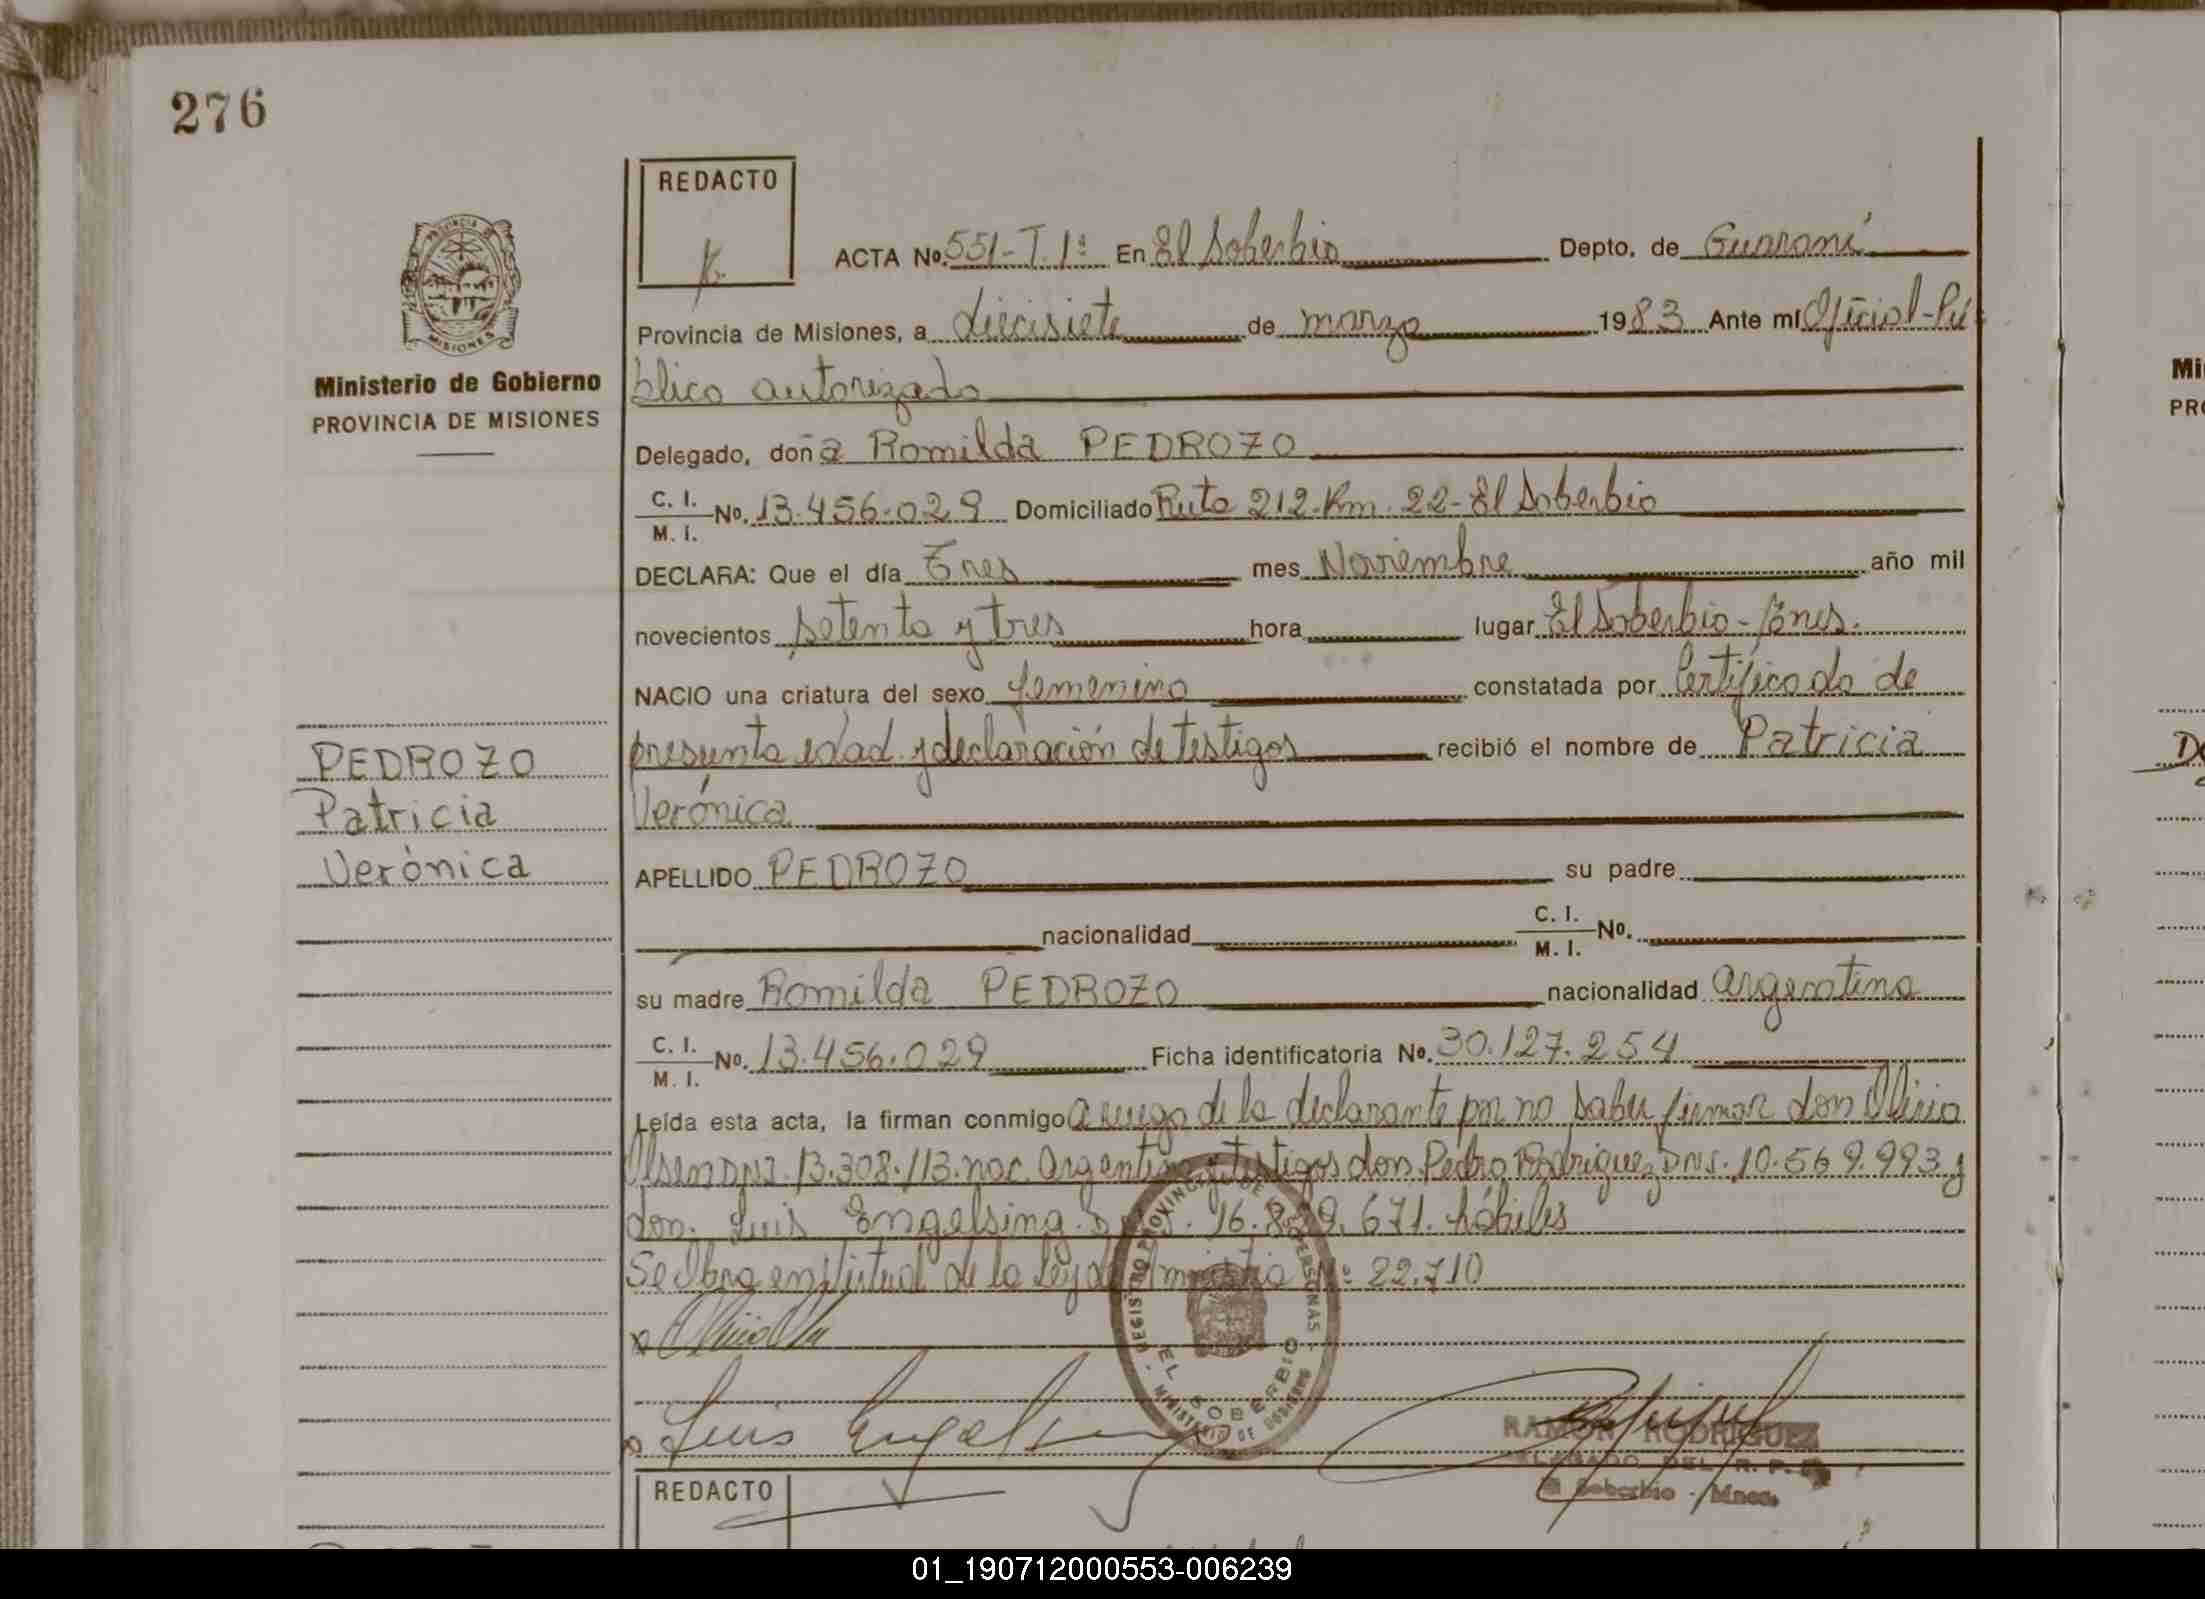 276
REDACTO
ACTA No. 551-T.1º En El Soberbio Depto. de Guaraní
Provincia de Misiones, a diecisiete de marzo 1983 Ante mí Oficial-Pú
blico autorizado
Delegado, doña Romilda PEDROZO
C. I.
M. I. No. 13.456.029 Domiciliado Ruta 212-Km. 22-El Soberbio
DECLARA: Que el día Tres mes Noviembre año mil
novecientos setenta y tres hora lugar El Soberbio-Mnes.
NACIO una criatura del sexo femenino constatada por Certificado de
presunta edad y declaración de testigos recibió el nombre de Patricia
Verónica
APELLIDO PEDROZO su padre
nacionalidad C. I.
M. I. No.
su madre Romilda PEDROZO nacionalidad argentina
C. I.
M. I. No. 13.456.029 Ficha identificatoria No. 30.127.254
Leída esta acta, la firman conmigo a ruego de la declarante por no saber firmar don
Olsen D.N.I. 13.308.113.nac. Argentina y testigos don Pedro Rodriguez D.N.I. 10.569.993 y
don. Luis Engelsing. 671. hábiles
Se Ley de Amnistia Nº 22.710
Luis Engelsing
RAMON RODRIGUEZ
DELEGADO DEL R. P.
El Soberbio - Mnes.
REGISTRO PROVINCIAL DE LAS PERSONAS
EL SOBERBIO
MINISTERIO DE GOBIERNO
REDACTO
PROVINCIA DE
MISIONES
Ministerio de Gobierno
PROVINCIA DE MISIONES
PEDROZO
Patricia
Verónica
Mi
PRO
01_190712000553-006239